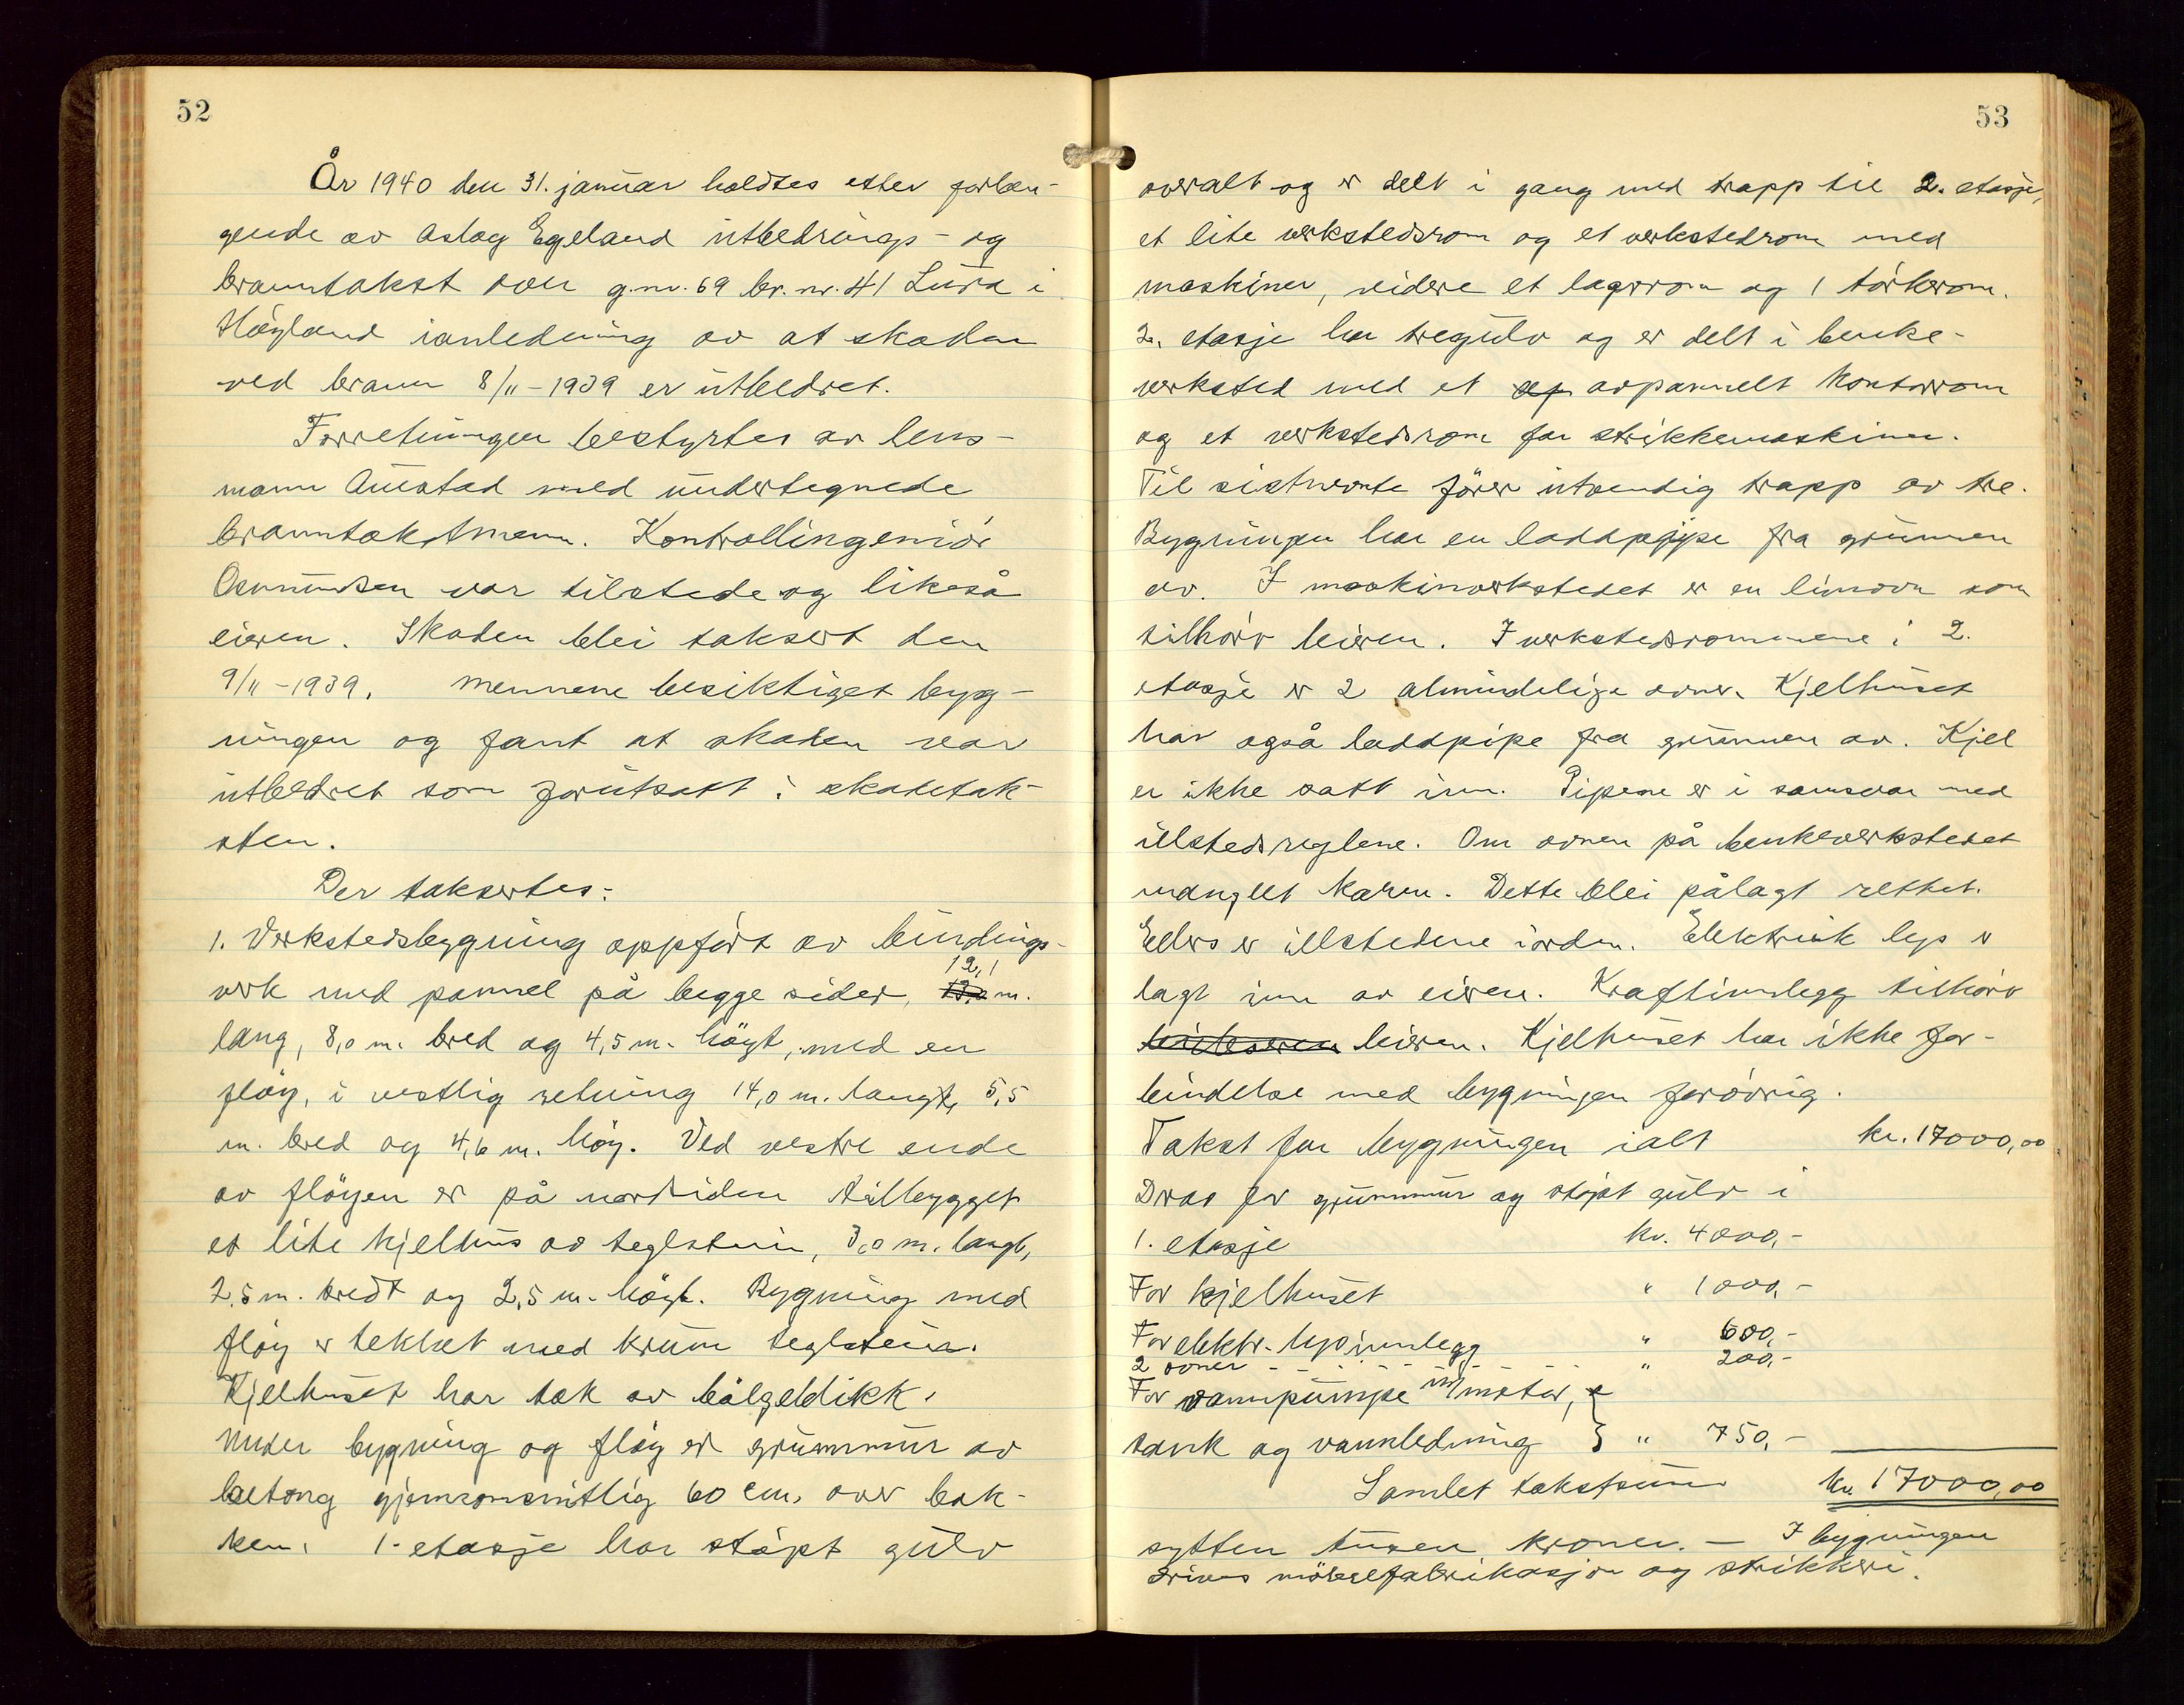 52
År 1940 den 31. januar holdtes etter forlan-
gende av Aslag Egeland utbedrings- og
branntakst over g.nr. 69 br. nr. 41 Lura i
Høyland ianledning av at skaden
ved brann 8/11-1939 er utbedret.
Forretningen bestyrtes av lens-
mann Auestad med undertegnede
branntakstmenn. Kontrollingeniör
Osmundsen var tilstede og likeså
eieren. Skaden blei taksert den
9/11-1939. Mennene besiktiget byg-
ningen og fant at skaden var
utbedret som forutsatt i skadetak-
sten.
Der taksertes:
1. Verkstedsbygning oppført av bindings-
verk med pannel på begge sider, 12,1 m.
lang, 8,0 m. bred og 4,5 m. höyt, med en
flöy, i vestlig retning 14,0 m. langt, 5,5
m. bred og 4,6 m. höy. Ved vestre ende
av flöyen er på nordsiden tilbygget
et lite kjelhus av teglstein, 3,0 m. langt,
2,5 m. bredt og 2,5 m. höyt. Bygning med
flöy er tekket med krum teglstein.
Kjelhuset har tak av bölgeblikk.
Under bygning og flöy er grunnmur av
betong gjennomsnitlig 60 cm. over bak-
ken. 1. etasje har stöpt gulv
53
overalt og er delt i gang med trapp til 2. etasje,
et lite verkstedsrom og et verkstedrom med
maskiner, videre et lagerrom og 1 törkerom.
2. etasje har tregulv og er delt i benke-
verksted med et avpannelt kontorrom
og et verkstedsrom for strikkemaskiner.
Til sistnevnte förer utvendig trapp av tre.
Bygningen har en loddpipe fra grunnen
av. I maskinverkstedet er en limovn som
tilhörer leieren. I verkstedsrommene i 2.
etasje er 2 almindelige ovner. Kjelhuset
har også loddpipe fra grunnen av. Kjel
er ikke satt inn. Pipene er i samsvar med
illstedsreglene. Om ovnen på benkeverkstedet
manglet karm. Dette blei pålagt rettet.
Ellers er illstedene iorden. Elektrisk lys er
lagt inn av eieren. Kraftinnlegg tilhörer
leieren. Kjelhuset har ikke for-
bindelse med bygningen forövrig.
Takst for bygningen ialt kr. 17000,00
Derav for grunnmur og stöpt gulv i
1. etasje kr. 4000,-
For kjelhuset " 1000,-
For elektr. lysinnlegg " 600,-
2 ovner - - - - - - - " 200,-
For vannpumpe m/motor,
tank og vannledning } " 750,-
Samlet takstsum kr. 17000,00
sytten tusen kroner. — I bygningen
drives möbelfabrikasjon og strikkeri.